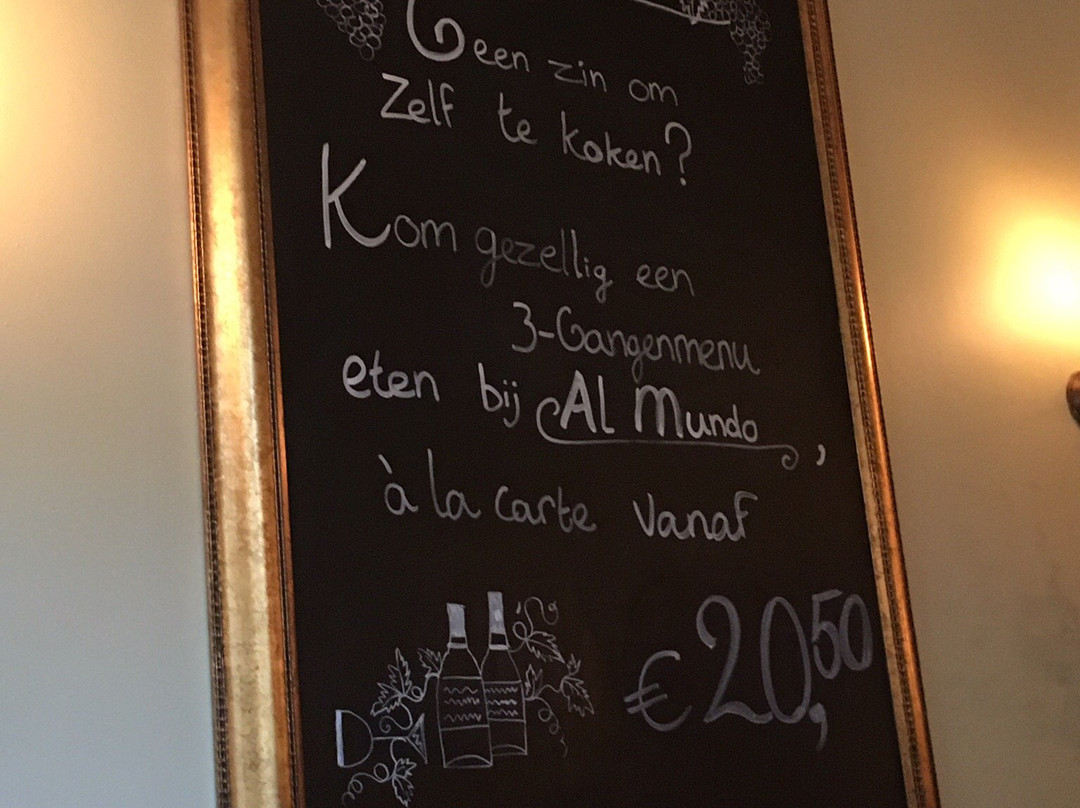 Geen zin om
Zelf te koken?
Kom gezellig een
3-Gangenmenu
eten bij Al Mundo,
à la carte vanaf
€20,50